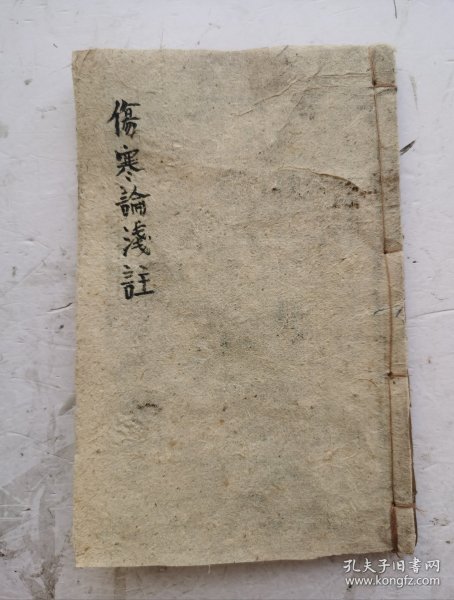 傷寒論淺註
孔夫子旧书网
https://www.kongfz.com